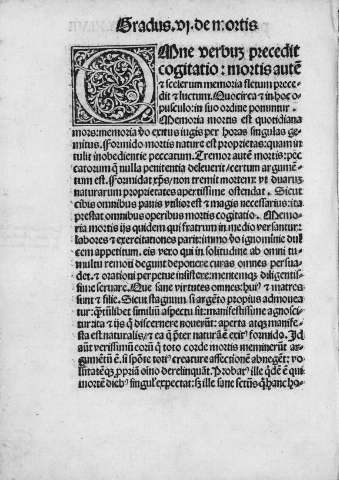 Gradus. vj. de mortis
OMne verbuȝ precedit
cogitatio: mortis autē
⁊ scelerum memoria fletum prece-
dit ⁊ luctum. Quocirca ⁊ in hoc o-
pusculo: in suo ordine ponuntur.
Memoria mortis est quotidiana
mors: memoria ṽo exitus iugis per horas singulas ge-
mitus. Formido mortis nature est proprietas: quam in-
tulit inobedientie peccatum. Tremor autē mortis: pec-
catorum q̄ nulla penitentia deleuerit / certum argumē-
tum est. Formidat xp̄s / non tremit mortem: vt duarum
naturarum proprietates apertissime ostendat. Sicut
cibis omnibus panis vtilior est ⁊ magis necessarius: ita
prestat omnibus operibus mortis cogitatio. Memo-
ria mortis ijs quidem qui fratrum in medio versantur:
labores ⁊ exercitationes parit: immo ṽo ignominie dul-
cem appetitum. eis vero qui in solitudine ab omni tu-
multu remoti degunt deponere curas omnes persua-
det. ⁊ orationi perpetue insistere: mentemqȝ diligentis-
sime seruare. Que sane virtutes omnes: hui⁹ ⁊ matres
sunt ⁊ filie. Sicut stagnum si argēto propius admouea-
tur: q̄ȝtūlibet similiū aspectu sit: manifestissime agnosci-
tur ita ⁊ ijs q̄ discernere nouerūt: aperta atqȝ manife-
sta est naturalis / ⁊ ea q̄ p̄ter naturā ē exit⁹ formido. Id
aūt verissimū eorū q̄ toto corde mortis meminerūt ar-
gumētū ē. si spōte toti⁹ creature affectionē abnegēt: vo-
lūtatēqȝ ꝓpriā oīno derelinquāt. Probat⁹ ille q̄dē ē qui
mortē dieb⁹ singul⁹ expectat: sȝ ille sane sctūs q̄ hanc ho-